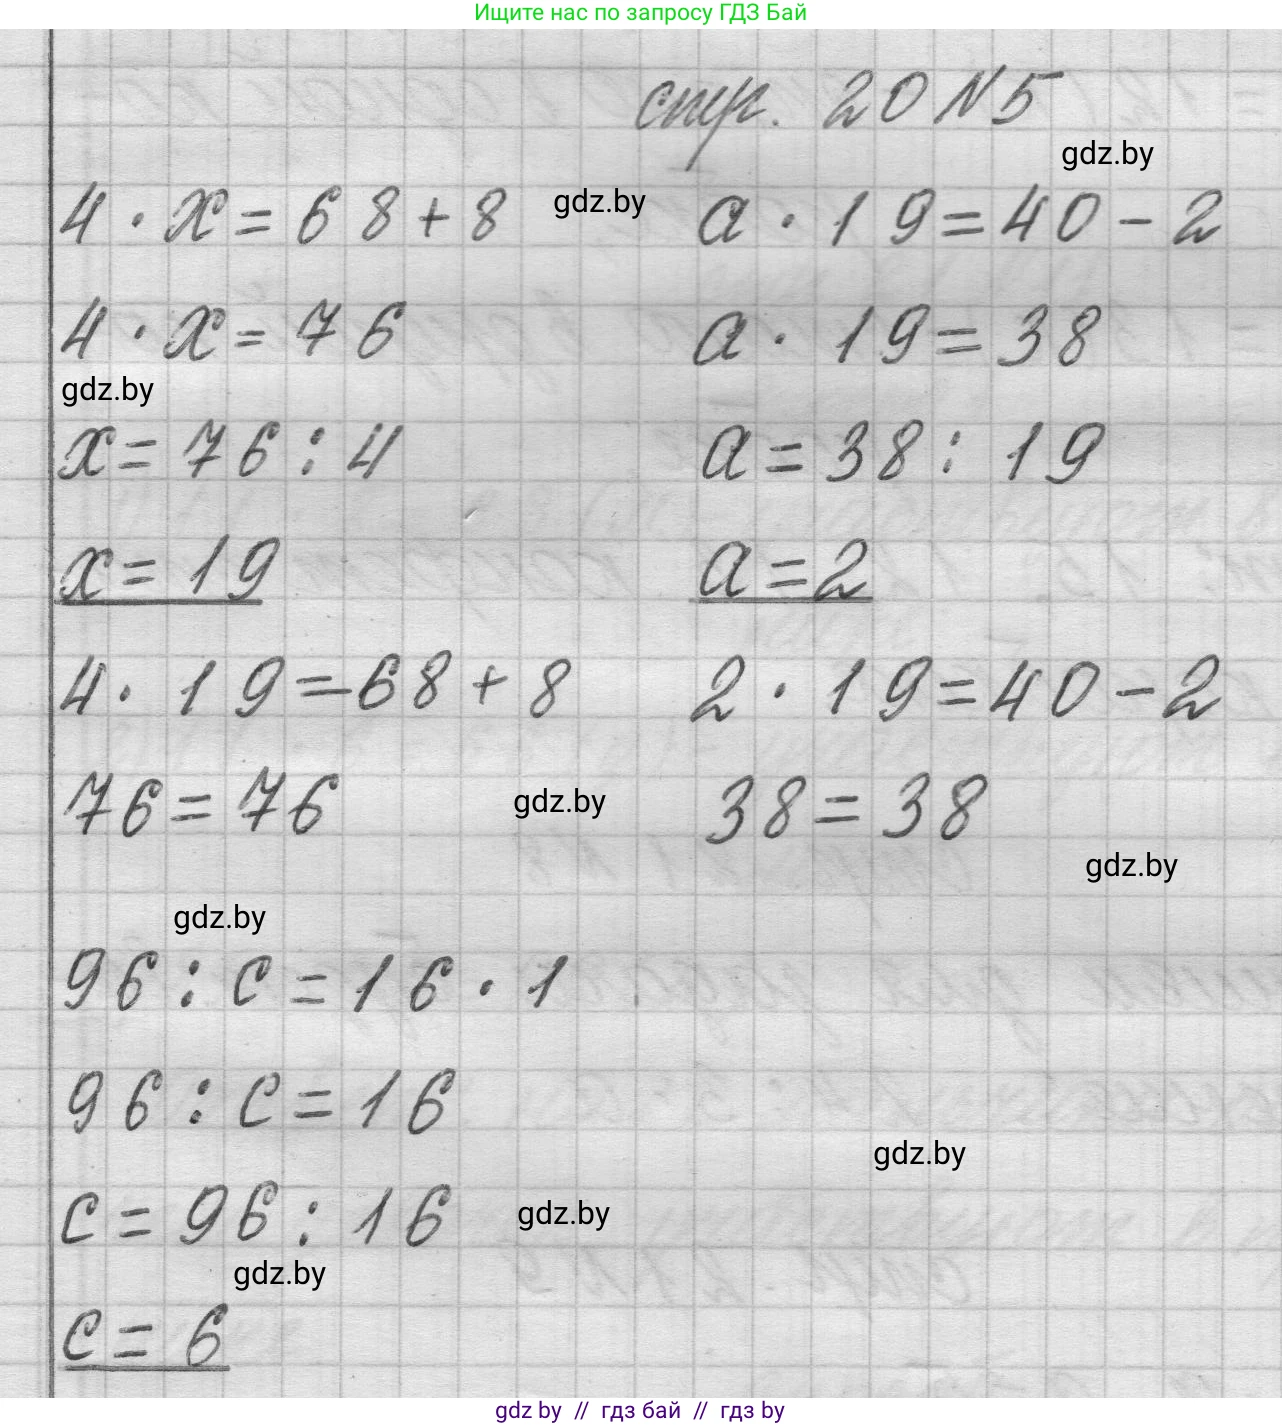 Ищите нас по запросу ГДЗ Бай
стр. 20 N 5
gdz.by
4 · x = 68 + 8
gdz.by
a · 19 = 40 - 2
4 · x = 76
a · 19 = 38
gdz.by
x = 76 : 4
a = 38 : 19
x = 19
a = 2
4 · 19 = 68 + 8
2 · 19 = 40 - 2
76 = 76
gdz.by
38 = 38
gdz.by
gdz.by
96 : c = 16 · 1
96 : c = 16
gdz.by
c = 96 : 16
gdz.by
gdz.by
c = 6
gdz by // гдз бай // гдз by